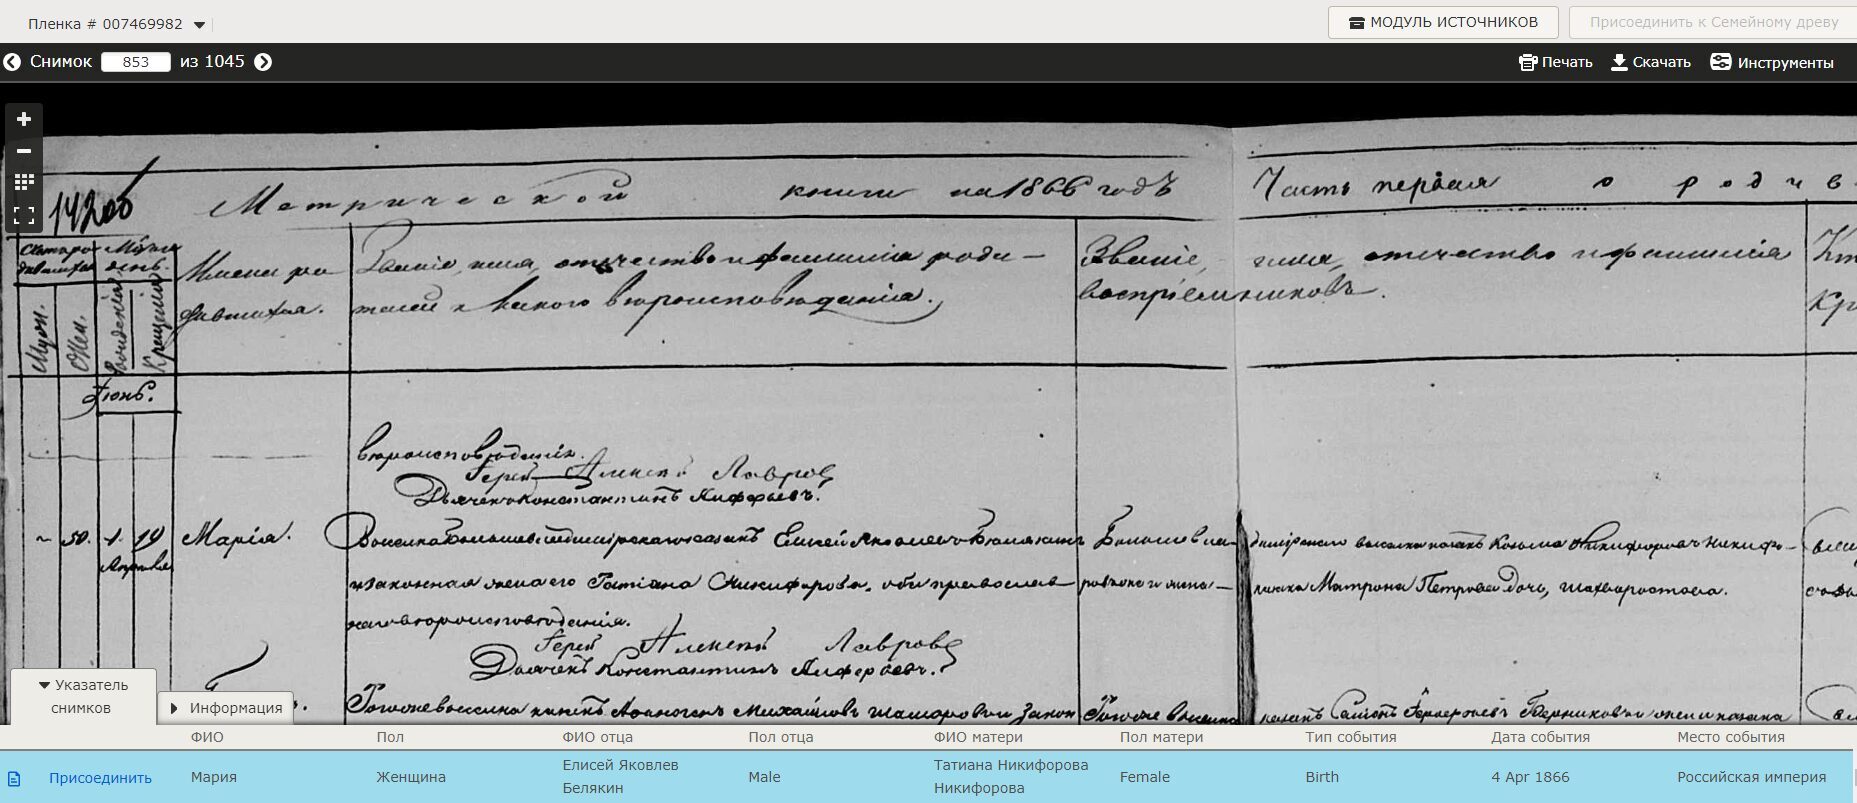 Пленка # 007469982
МОДУЛЬ ИСТОЧНИКОВ
Присоединить к Семейному древу
Снимок 853 из 1045
Печать
Скачать
Инструменты
142об
Метрической книги на 1866 годъ Часть первая о родив
Мужа
Имена ро
дившихся.
Званіе, имя, отчество и фамилія роди-
телей и какого вѣроисповѣданія.
Званіе, имя, отчество и фамилія
воспріемниковъ.
Муж.
Жен.
Рожденія
Крещенія
Іюнь.
вѣроисповѣданія.
Іерей Алексей Лавровъ
Дьячекъ Константинъ Алферьевъ.
50. 1. 19 Марія.
Апреля
козакъ Елисей Яковлевъ Белякинъ
и законная жена его Татіана Никифорова, оба православ
наго вѣроисповѣданія.
козакъ Козьма Никифоровъ Никифо-
Матрона Петрова дочь,
Іерей Алексей Лавровъ
Дьячекъ Константинъ Алферьевъ.
Михайловъ и закон
Указатель
снимков
Информация
ФИО Пол ФИО отца Пол отца ФИО матери Пол матери Тип события Дата события Место события
Присоединить Мария Женщина Елисей Яковлев Белякин Male Татиана Никифорова Никифорова Female Birth 4 Apr 1866 Российская империя